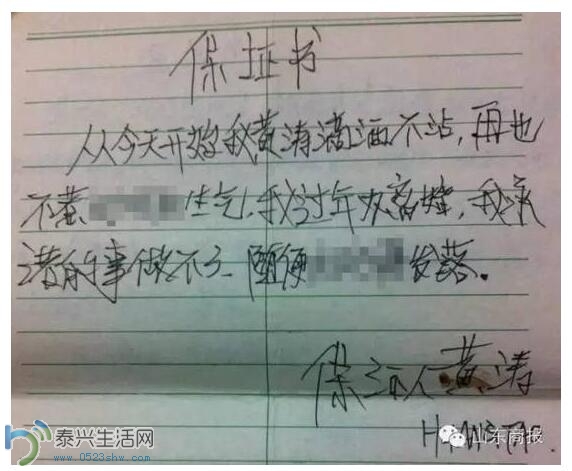 保证书
从今天开始我黄涛滴酒不沾，再也
不惹 生气，我 过年 离婚，我承
诺的事做不了 随便 发落。
保证人 黄涛
山东商报
泰兴生活网
www.0523shw.com